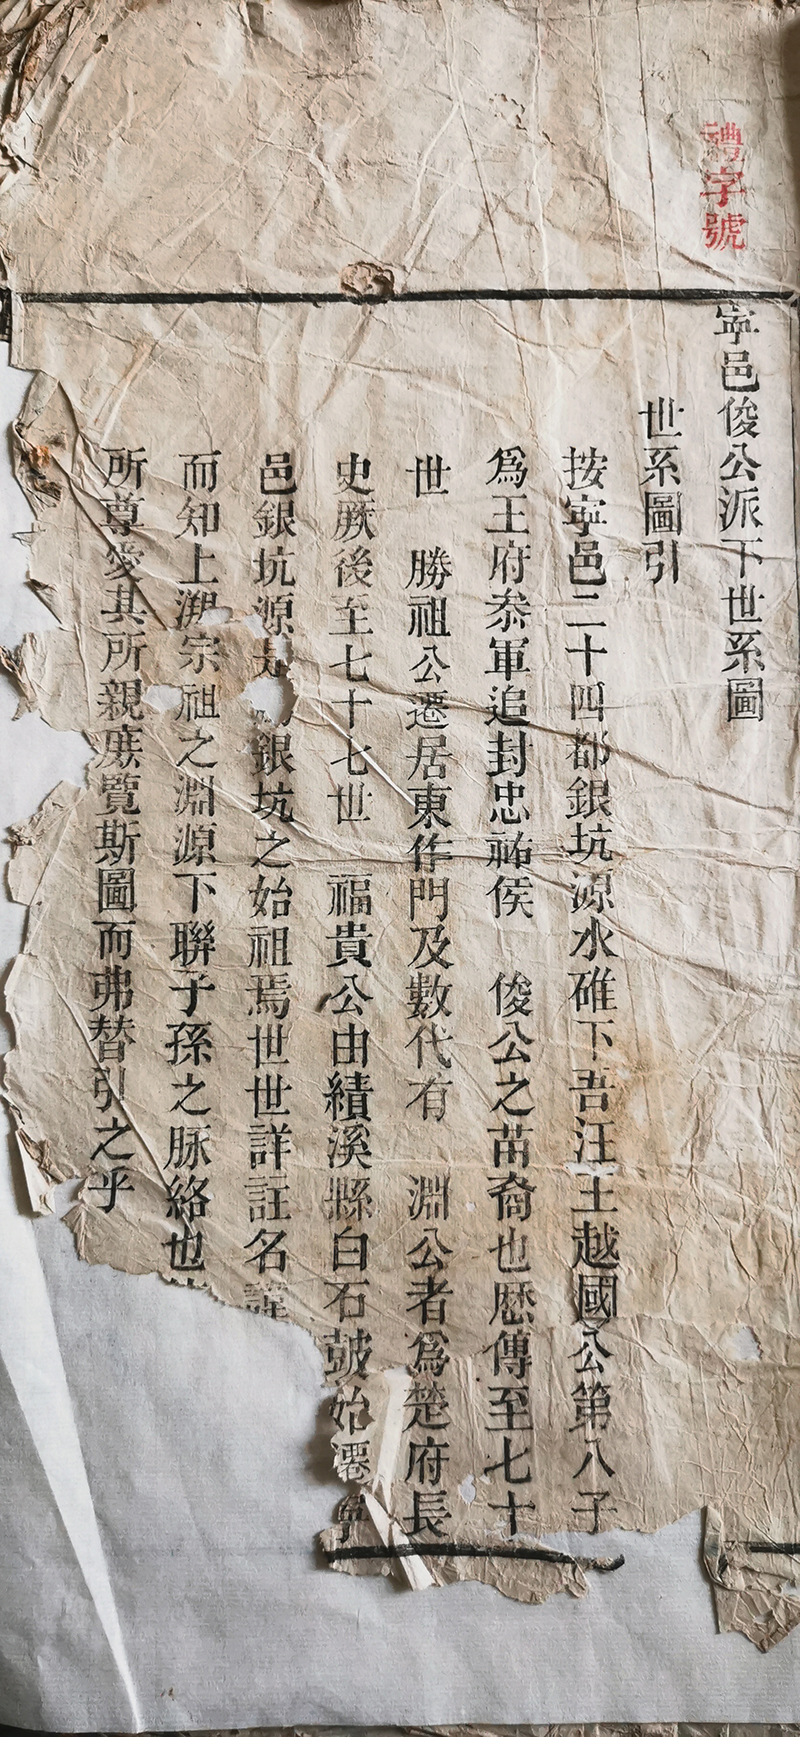 禮字號
寧邑俊公派下世系圖
世系圖引
按寧邑二十四都銀坑源水碓下吾汪王越國公第八子
爲王府叅軍追封忠祐侯 俊公之苗裔也歷傳至七十
世 勝祖公遷居東作門及數代有 淵公者爲楚府長
史厥後至七十七世 福貴公由績溪縣白石鼓始遷寧
邑銀坑源 銀坑之始祖焉世世詳註名諱
而知上溯宗祖之淵源下聯子孫之脈絡也
所尊愛其所親庶覽斯圖而弗替引之乎